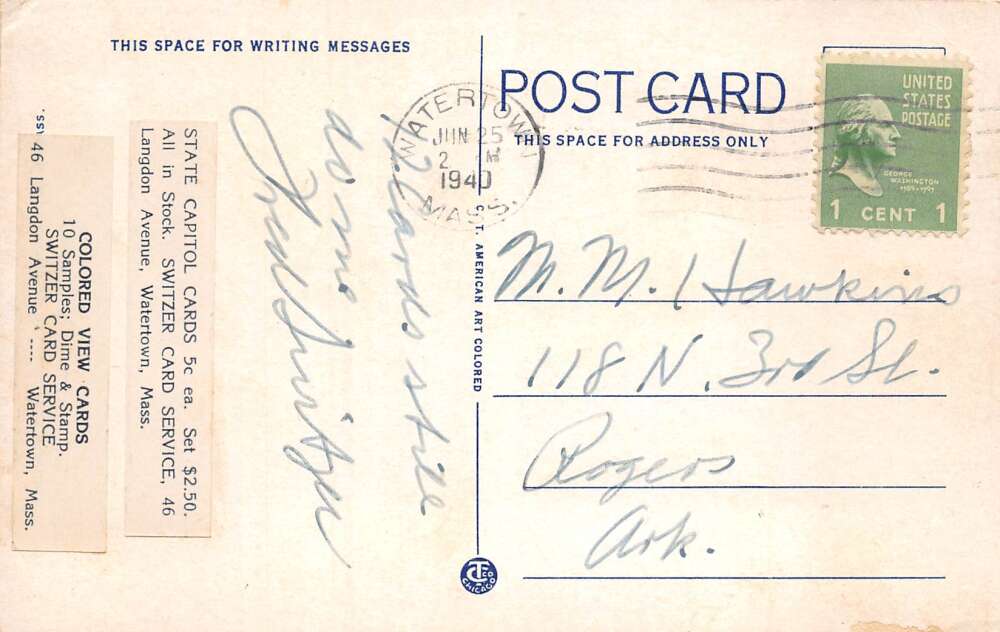 THIS SPACE FOR WRITING MESSAGES
POST CARD
THIS SPACE FOR ADDRESS ONLY
UNITED
STATES
POSTAGE
GEORGE
WASHINGTON
1789-1797
1 CENT 1
WATERTOWN
JUN 25
2 M
1940
MASS.
cards still
do me
Fred Switzer
M. M. Hawkins
118 N. 3rd St.
Rogers
Ark.
C. T. AMERICAN ART COLORED
STATE CAPITOL CARDS 5c ea. Set $2.50.
All in Stock. SWITZER CARD SERVICE, 46
Langdon Avenue, Watertown, Mass.
COLORED VIEW CARDS
10 Samples; Dime & Stamp.
SWITZER CARD SERVICE
46 Langdon Avenue ---- Watertown, Mass.
CT CO
CHICAGO